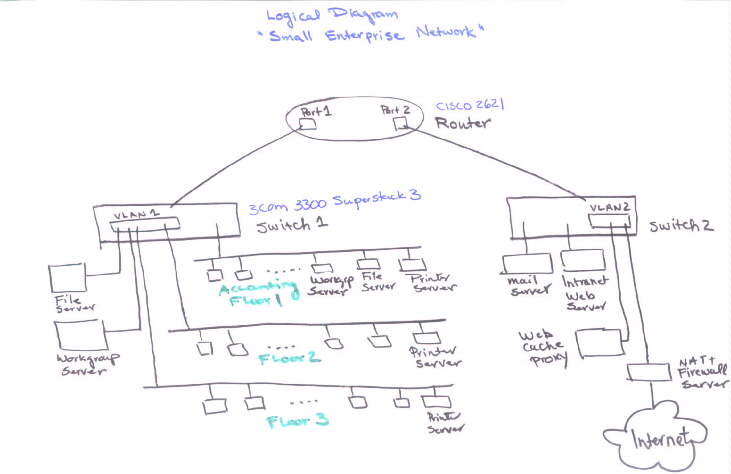 Logical Diagram
"Small Enterprise Network"
Port 1
Port 2
CISCO 2621
Router
3Com 3300 Superstack 3
Switch 1
VLAN 1
VLAN2
Switch 2
File
Server
Workgroup
Server
Accounting
Floor 1
.....
Workgrp
Server
File
Server
Printer
Server
Floor 2
....
Printer
Server
Floor 3
....
Printer
Server
mail
Server
Intranet
Web
Server
Web
Cache
Proxy
NAT+
Firewall
Server
Internet